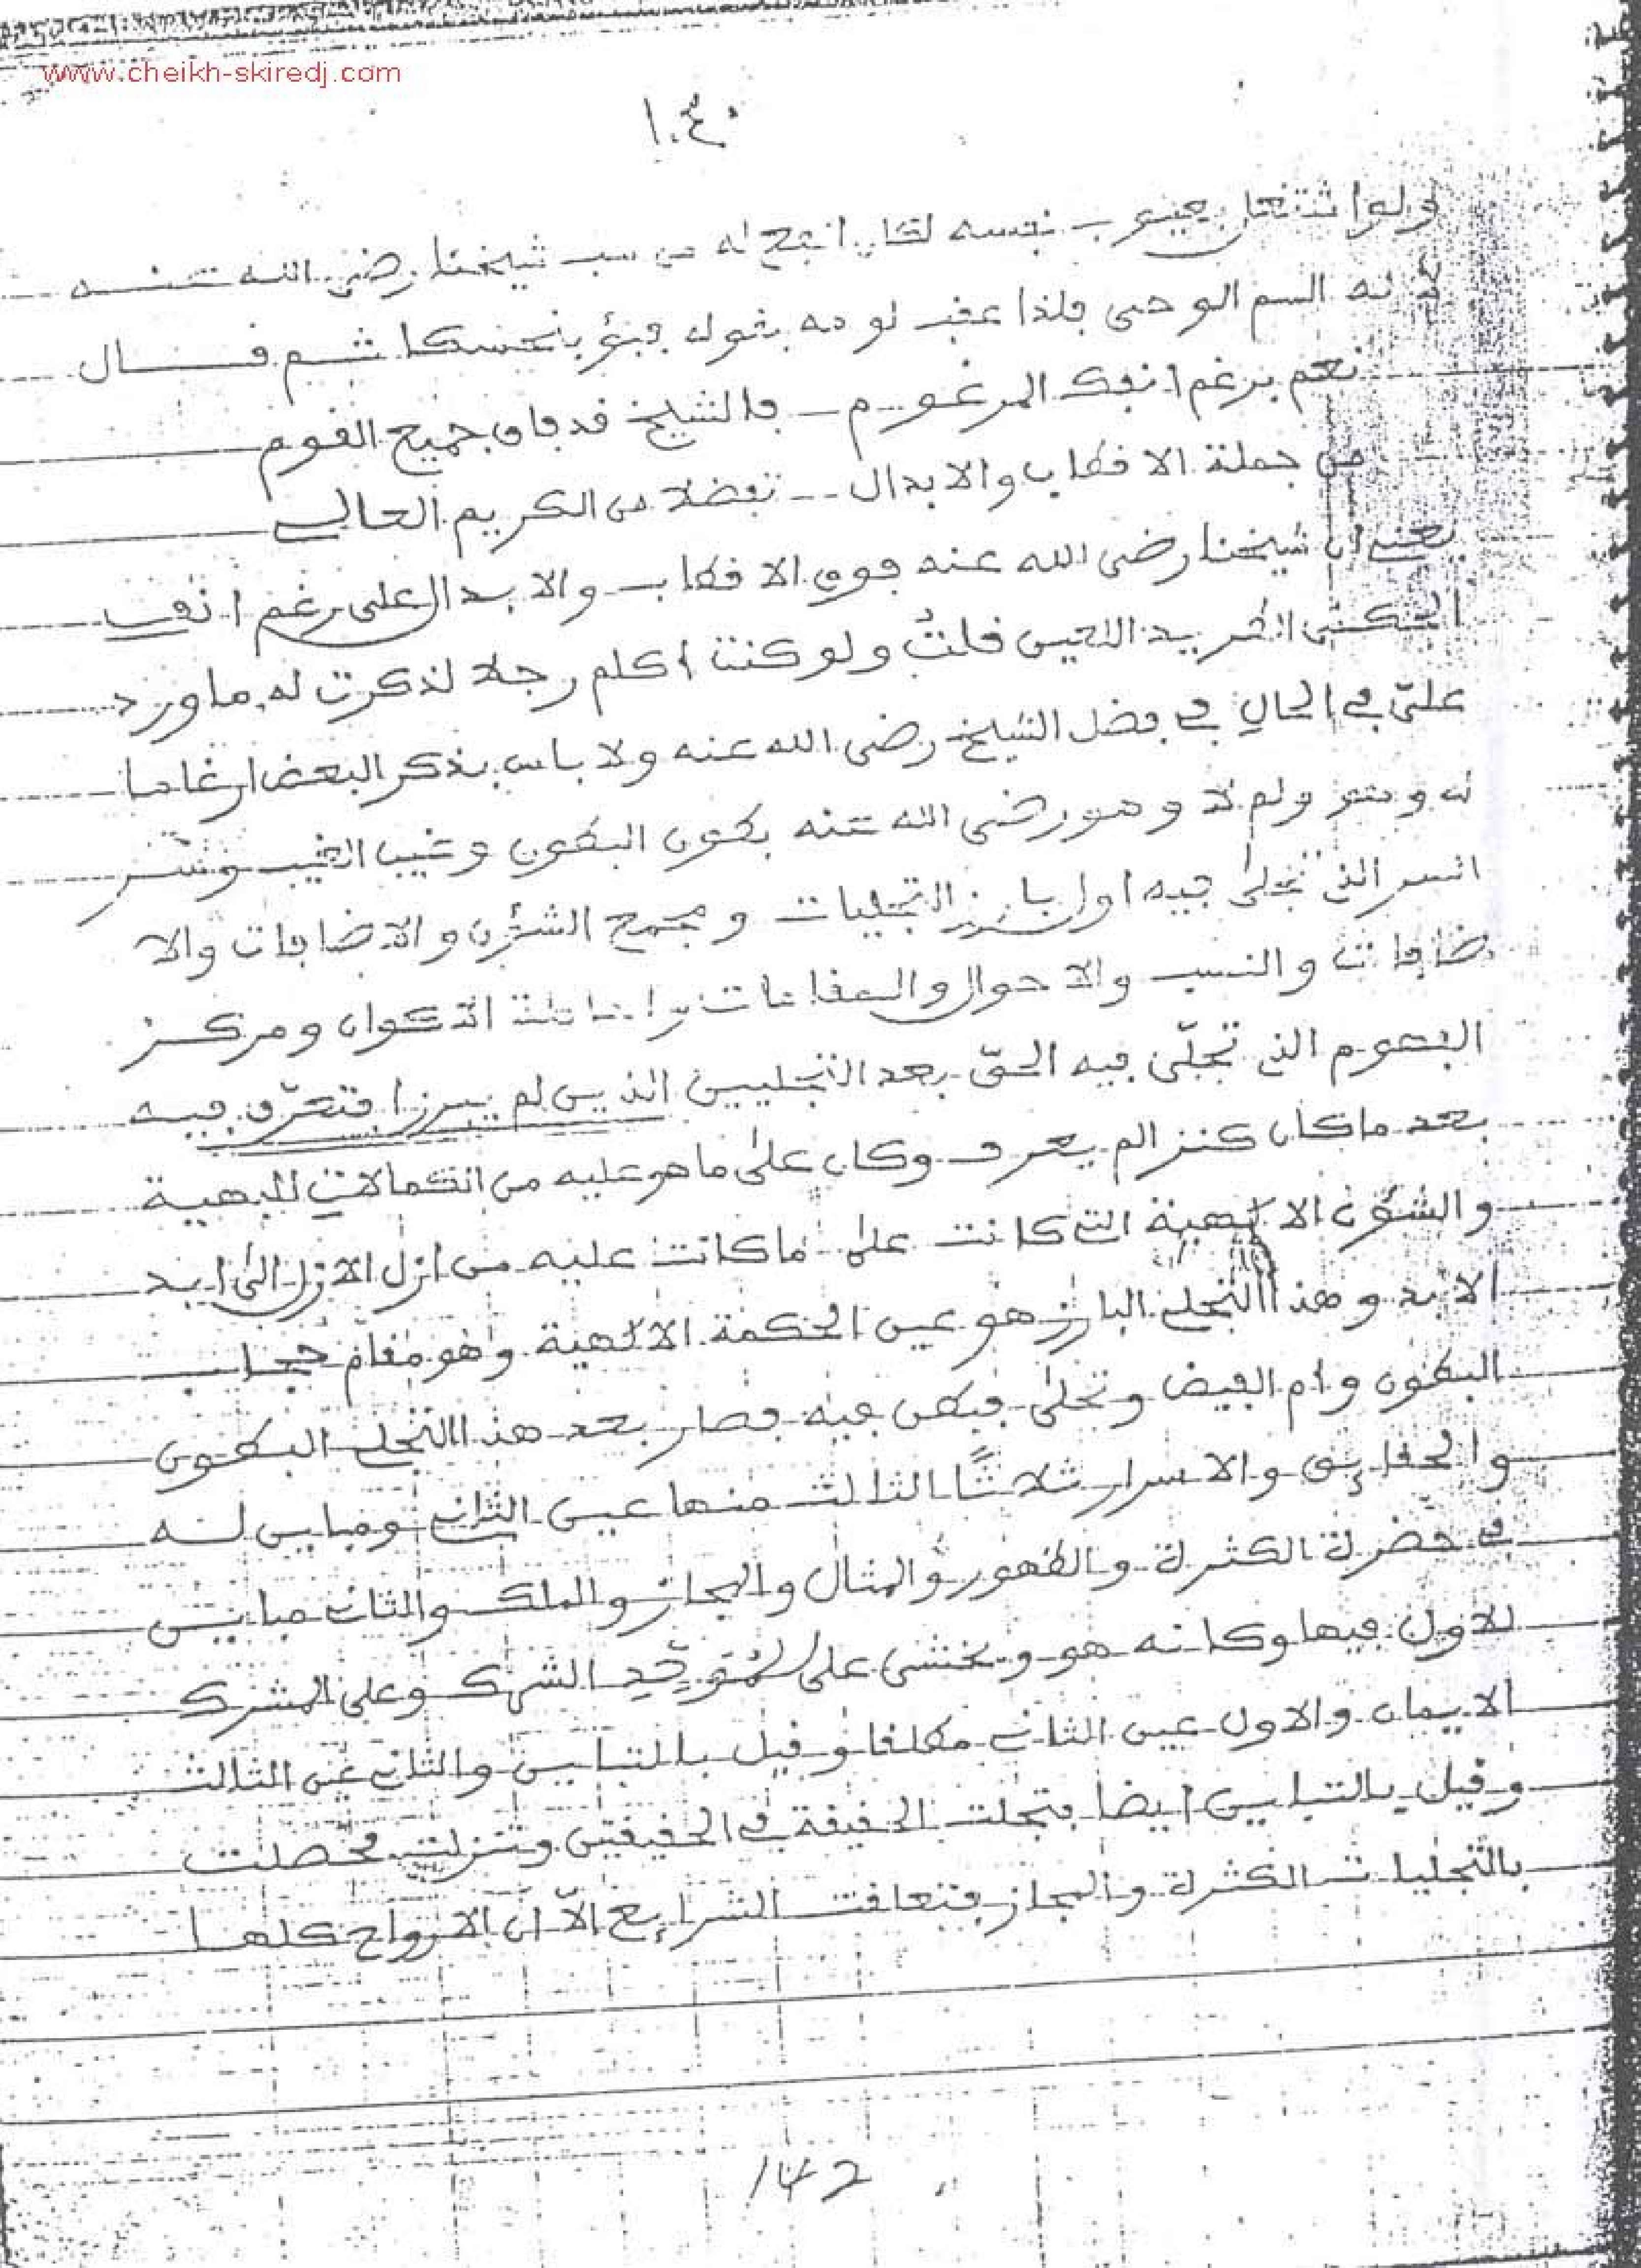 www.cheikh-skiredj.com
ولو اشتغل بعيوب نفسه لكان انفع له من سب شيخنا رضي الله عنه
لانه السم الوحى فلذا عقب لومه بقوله فبؤ بنحسكا ثم قال
نعم برغم انفك المرغوم فالشيخ قد فاق جميع القوم
من جملة الاقطاب والابدال تفضلا من الكريم العالي
يعنى ان شيخنا رضى الله عنه فوق الاقطاب والابدال على رغم انف
الطريد اللعين قلت ولو كنت اكلم رجلا لذكرت له ما ورد
علىّ في الحال في فضل الشيخ رضى الله عنه ولا باس بذكر البعض ارغاما
له ولم لا وهو رضى الله عنه بطون البطون وغيب الغيب وسر
السر الذي تجلى فيه اول بارز التجليات ومجمع الشؤن والاضافات والا
ضافات والنسب والاحوال والمقامات الاكوان ومركز
الذي تجلّى فيه الحقّ بعد التجليين الذين لم يبرزا فتعرّف فيه
بعد ما كان كنزا لم يعرف وكان على ما هو عليه من الكمالات البهية
والشؤن الالاهية التى كانت على ما كانت عليه من ازل الازل الى ابد
الابد وهذا التجلي البارز هو عين الحكمة الالاهية وهو مقام حجاب
البطون وام الفيض وتجلى فبطن فيه فصار بعد هذا التجلي البطون
والحقايق والاسرار ثلاثًا الثالث منها عين الثاني ومباين له
في حضرة الكثرة والظهور والمثال والمجاز والملك والثاني مباين
للاول فيها وكانه هو ويخشى على الموحّد الشرك وعلى المشرك
الايمان والاول عين الثاني مطلقا وقيل بالتباين والثاني عين الثالث
وقيل بالتباين ايضا فتجلت الحقيقة في الحقيقتين وتنزلت فحصلت
بالتجليات الكثرة والمجاز فتعاقت الشرايع الاّ ان الارواح كلها